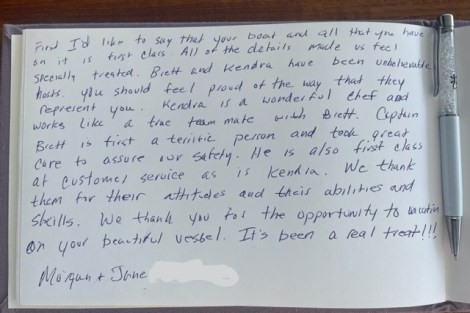 First I'd like to say that your boat and all that you have
on it is first class. All of the details made us feel
specially treated. Brett and Kendra have been unbelievable
hosts. You should feel proud of the way that they
represent you. Kendra is a wonderful chef and
works like a true team mate with Brett. Captain
Brett is first a terrific person and took great
care to assure our safety. He is also first class
at customer service as is Kendra. We thank
them for their attitudes and their abilities and
skills. We thank you for the opportunity to vacation
on your beautiful vessel. It's been a real treat!!!
Morgan + June